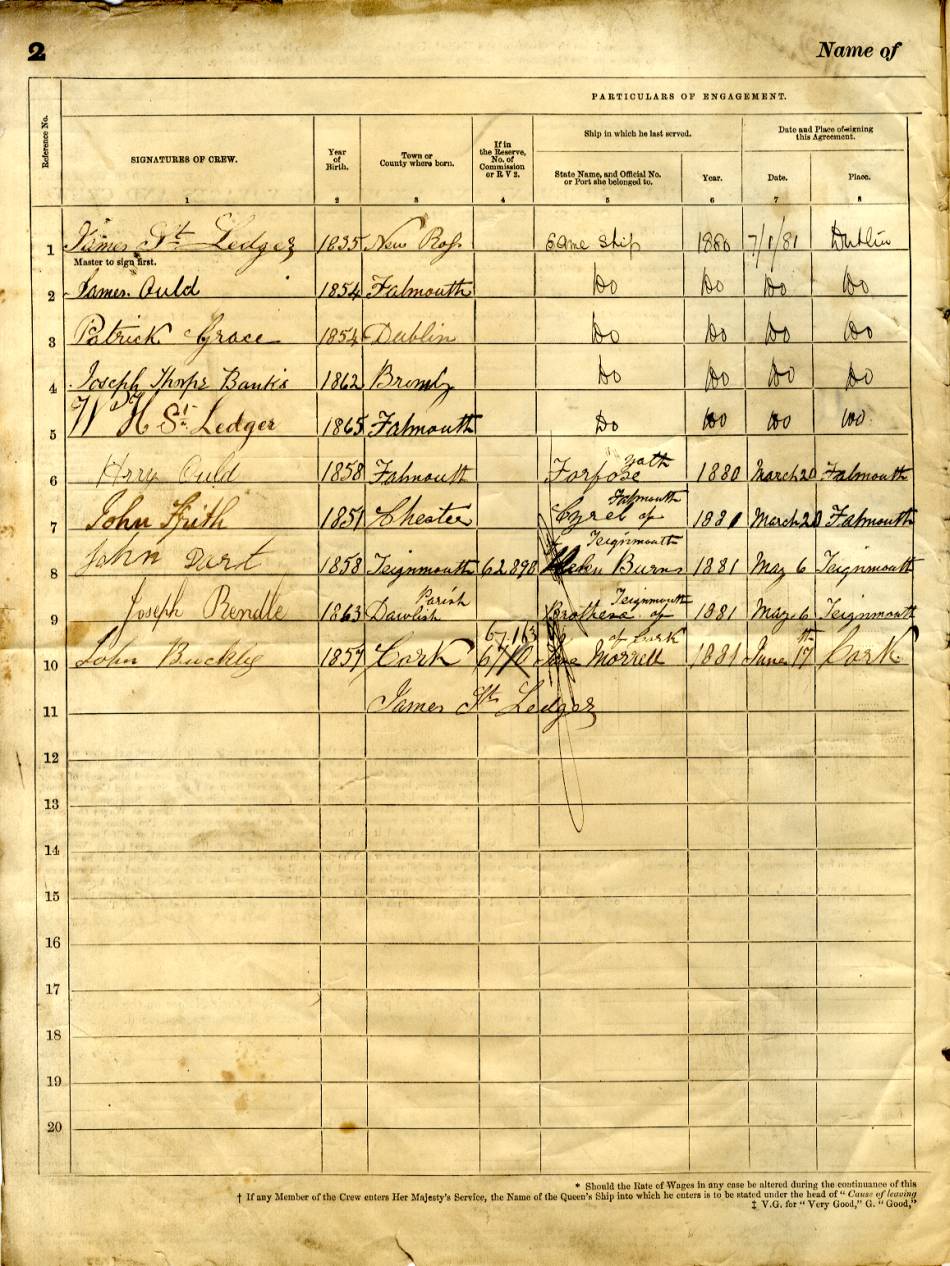 2 Name of
PARTICULARS OF ENGAGEMENT.
Reference No.
SIGNATURES OF CREW.
Year of Birth.
Town or County where born.
If in the Reserve, No. of Commission or R V 2.
Ship in which he last served.
State Name, and Official No. or Port she belonged to.
Year.
Date and Place of signing this Agreement.
Date.
Place.
1 2 3 4 5 6 7 8
1 James St. Ledger 1835 New Ross same ship 1880 7/1/81 Dublin
Master to sign first.
2 James Ould 1854 Falmouth Do Do Do Do
3 Patrick Grace 1854 Dublin Do Do Do Do
4 Joseph Thorpe Banks 1862 Bromly Do Do Do Do
5 Wm H St. Ledger 1865 Falmouth Do Do Do Do
6 Hrry Ould 1858 Falmouth 1880 March 20 Falmouth
7 John Frith 1851 Chester Cyrel of Falmouth 1881 March 20 Falmouth
8 John Dart 1858 Teignmouth 62898 Helen Burns Teignmouth 1881 May 6 Teignmouth
9 Joseph Rendle 1863 Dawlish Parish Brothers of Teignmouth 1881 May 6 Teignmouth
10 John Buckly 1857 Cork 67.163 Jane Morrell of Cork 1881 June 17th Cork
11 James St Ledger
12
13
14
15
16
17
18
19
20
* Should the Rate of Wages in any case be altered during the continuance of this
† If any Member of the Crew enters Her Majesty's Service, the Name of the Queen's Ship into which he enters is to be stated under the head of "Cause of leaving
‡ V.G. for "Very Good," G. "Good,"